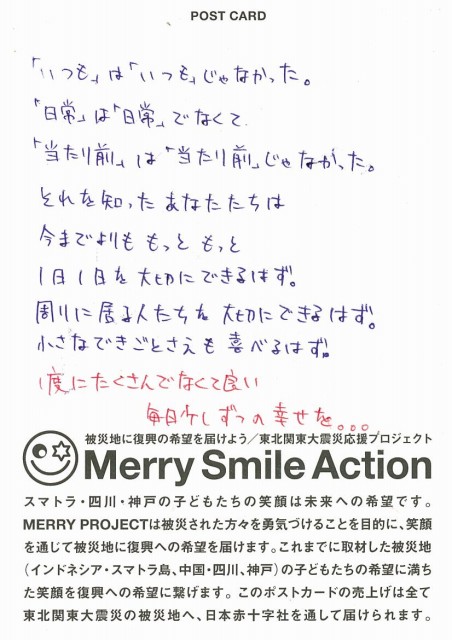 POST CARD
「いつも」は「いつも」じゃなかった。
「日常」は「日常」でなくて
「当たり前」は「当たり前」じゃなかった。
それを知ったあなたたちは
今までよりももっともっと
1日1日を大切にできるはず。
周りに居る人たちを大切にできるはず。
小さなできごとさえも喜べるはず。
1度にたくさんでなくて良い
毎日少しずつの幸せを。。。
被災地に復興の希望を届けよう／東北関東大震災応援プロジェクト
Merry Smile Action
スマトラ・四川・神戸の子どもたちの笑顔は未来への希望です。
MERRY PROJECTは被災された方々を勇気づけることを目的に、笑顔
を通じて被災地に復興への希望を届けます。これまでに取材した被災地
（インドネシア・スマトラ島、中国・四川、神戸）の子どもたちの希望に満ち
た笑顔を復興への希望に繋げます。このポストカードの売上げは全て
東北関東大震災の被災地へ、日本赤十字社を通して届けられます。